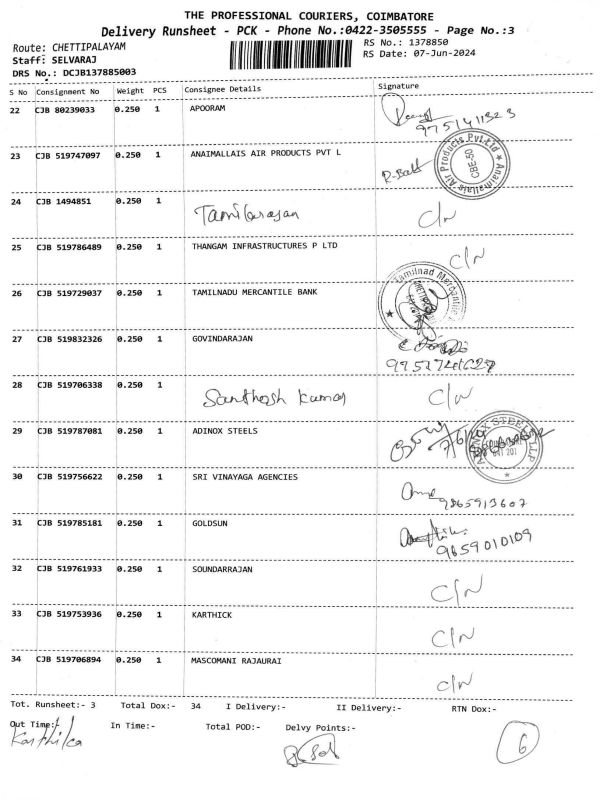 THE PROFESSIONAL COURIERS, COIMBATORE
Delivery Runsheet - PCK - Phone No.:0422-3505555 - Page No.:3
Route: CHETTIPALAYAM RS No.: 1378850
Staff: SELVARAJ RS Date: 07-Jun-2024
DRS No.: DCJB137885003
S No Consignment No Weight PCS Consignee Details Signature
22 CJB 80239033 0.250 1 APOORAM
9751411323
23 CJB 519747097 0.250 1 ANAIMALLAIS AIR PRODUCTS PVT L
Anaimallais Air Products Pvt Ltd
CBE-50
24 CJB 1494851 0.250 1
Tamilarasan C/N
25 CJB 519786489 0.250 1 THANGAM INFRASTRUCTURES P LTD
C/N
26 CJB 519729037 0.250 1 TAMILNADU MERCANTILE BANK
Tamilnad Mercantile
27 CJB 519832326 0.250 1 GOVINDARAJAN
28 CJB 519706338 0.250 1
Santhosh Kumar C/N
29 CJB 519787081 0.250 1 ADINOX STEELS
30 CJB 519756622 0.250 1 SRI VINAYAGA AGENCIES
9865913607
31 CJB 519785181 0.250 1 GOLDSUN
9659010109
32 CJB 519761933 0.250 1 SOUNDARRAJAN
C/N
33 CJB 519753936 0.250 1 KARTHICK
C/N
34 CJB 519706894 0.250 1 MASCOMANI RAJAURAI
C/N
Tot. Runsheet:- 3 Total Dox:- 34 I Delivery:- II Delivery:- RTN Dox:-
Out Time:- In Time:- Total POD:- Delvy Points:-
Karthika 6